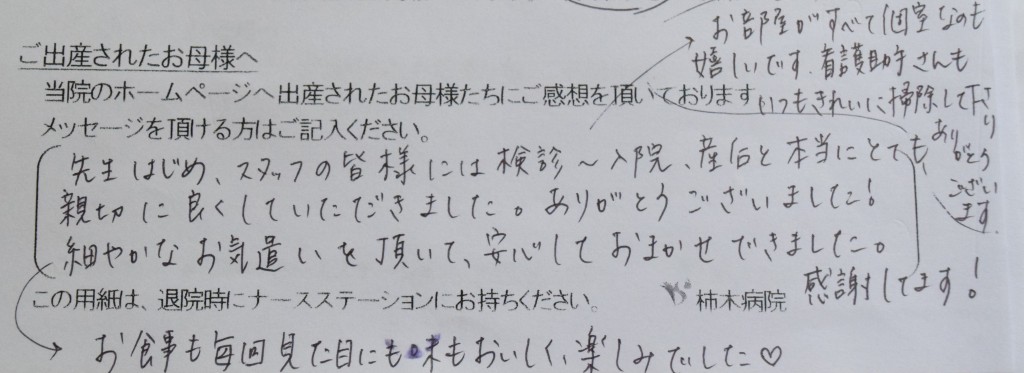 ご出産されたお母様へ
当院のホームページへ出産されたお母様たちにご感想を頂いております
メッセージを頂ける方はご記入ください。
先生はじめ、スタッフの皆様には検診～入院、産后と本当にとても
親切に良くしていただきました。ありがとうございました!
細やかなお気遣いを頂いて、安心しておまかせできました。
感謝してます!
この用紙は、退院時にナースステーションにお持ちください。
柿木病院
→お食事も毎回見た目にも味もおいしく、楽しみでした♡
→お部屋がすべて個室なのも
嬉しいです。看護助手さんも
いつもきれいに掃除して下さり
ありがとう
ございい
ます